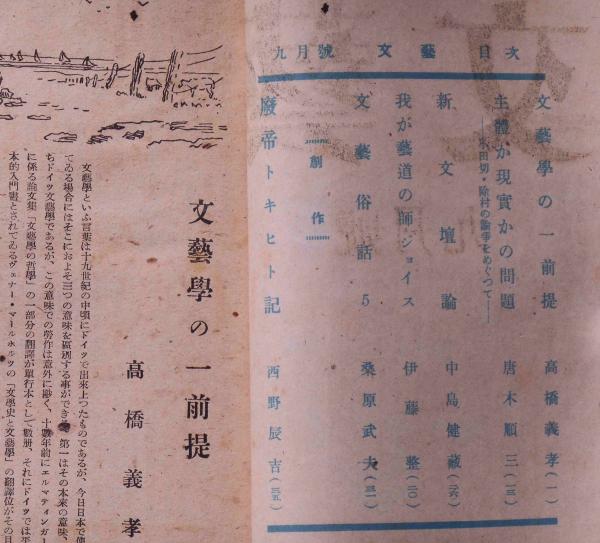 九月號 文藝 目次
文藝學の一前提 高橋義孝(一)
主體か現實かの問題 唐木順三(一三)
新文壇論 中島健藏(二六)
我が藝道の師ジョイス 伊藤整(二〇)
文藝俗話5 桑原武夫(三一)
創作
廢帝トキヒト記 西野辰吉(三五)
文藝學の一前提
高橋義孝
文藝學といふ言葉は十九世紀の中頃にドイツで出來上つたものであるが、今日日本で使
てゐる場合にはそこにおよそ三つの意味を區別する事ができる。第一はその本來の意味、
ちドイツ文藝學であるが、この意味での勞作は意外に尠く、十數年前にエルマティンガー
に係る論文集「文藝學の哲學」の一部分の翻譯が單行本として數册、それにドイツでは
本的入門書とされてゐるヴェナー・マールホルツの「文學史と文藝學」の翻譯位がその